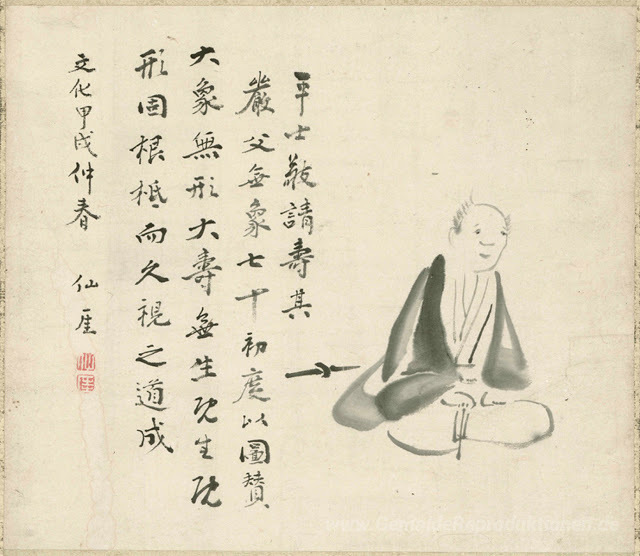 平士敬請壽其
嚴父無象七十初度以圖贊
大象無形大壽無生既生既
形固根柢而久視之道成
文化甲戌仲春 仙厓